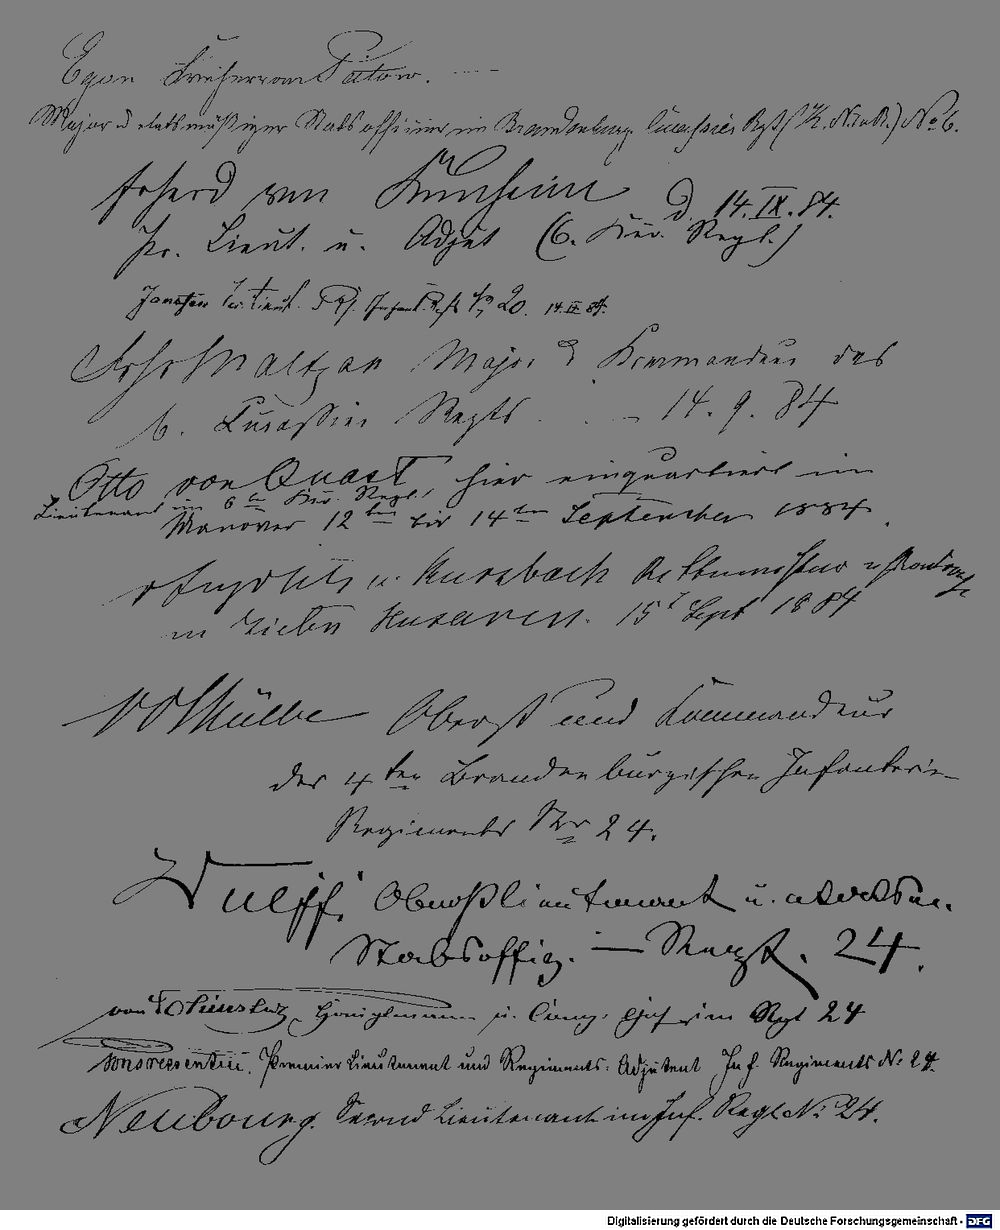 Egon Freiherr von Patow.
Major u etatsmäßiger Stabsoffizier im Brandenburg. Cürassier Regt (K. N. I v. R.) No 6.
von Kunheim d. 14. IX. 84.
Pr. Lieut. u. Adjut (6. Kür. Regt.)
Lieut. Inftr. Regt No 20. 14.IX 84.
Frhr Maltzan Major & Kommandeur des
6. Kürassier Regts 14. 9. 84
Otto von Quast, hier einquartiert im
Lieutenant im 6ten Kür. Regt.
Manöver 12ten bis 14ten September 1884.
v. Kurzbach Rittmeister u
in Zieten Husaren. 15t Sept 1884
Oberst und Kommandeur
des 4ten Brandenburgischen Infanterie-
Regiments Nr 24.
Wulff, Oberstlieutenant u. etatsm.
Stabsoffiz. — Regt. 24.
von Hauptmann u. Comp. Chef im Regt 24
Premierlieutenant und Regiments-Adjutant Inf. Regiments No 24.
Neubourg. Second Lieutenant im Inf. Regt No: 24.
Digitalisierung gefördert durch die Deutsche Forschungsgemeinschaft - DFG